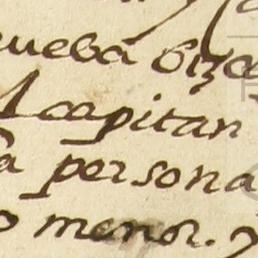 ueba viz
l capitan
a persona
o menor. y